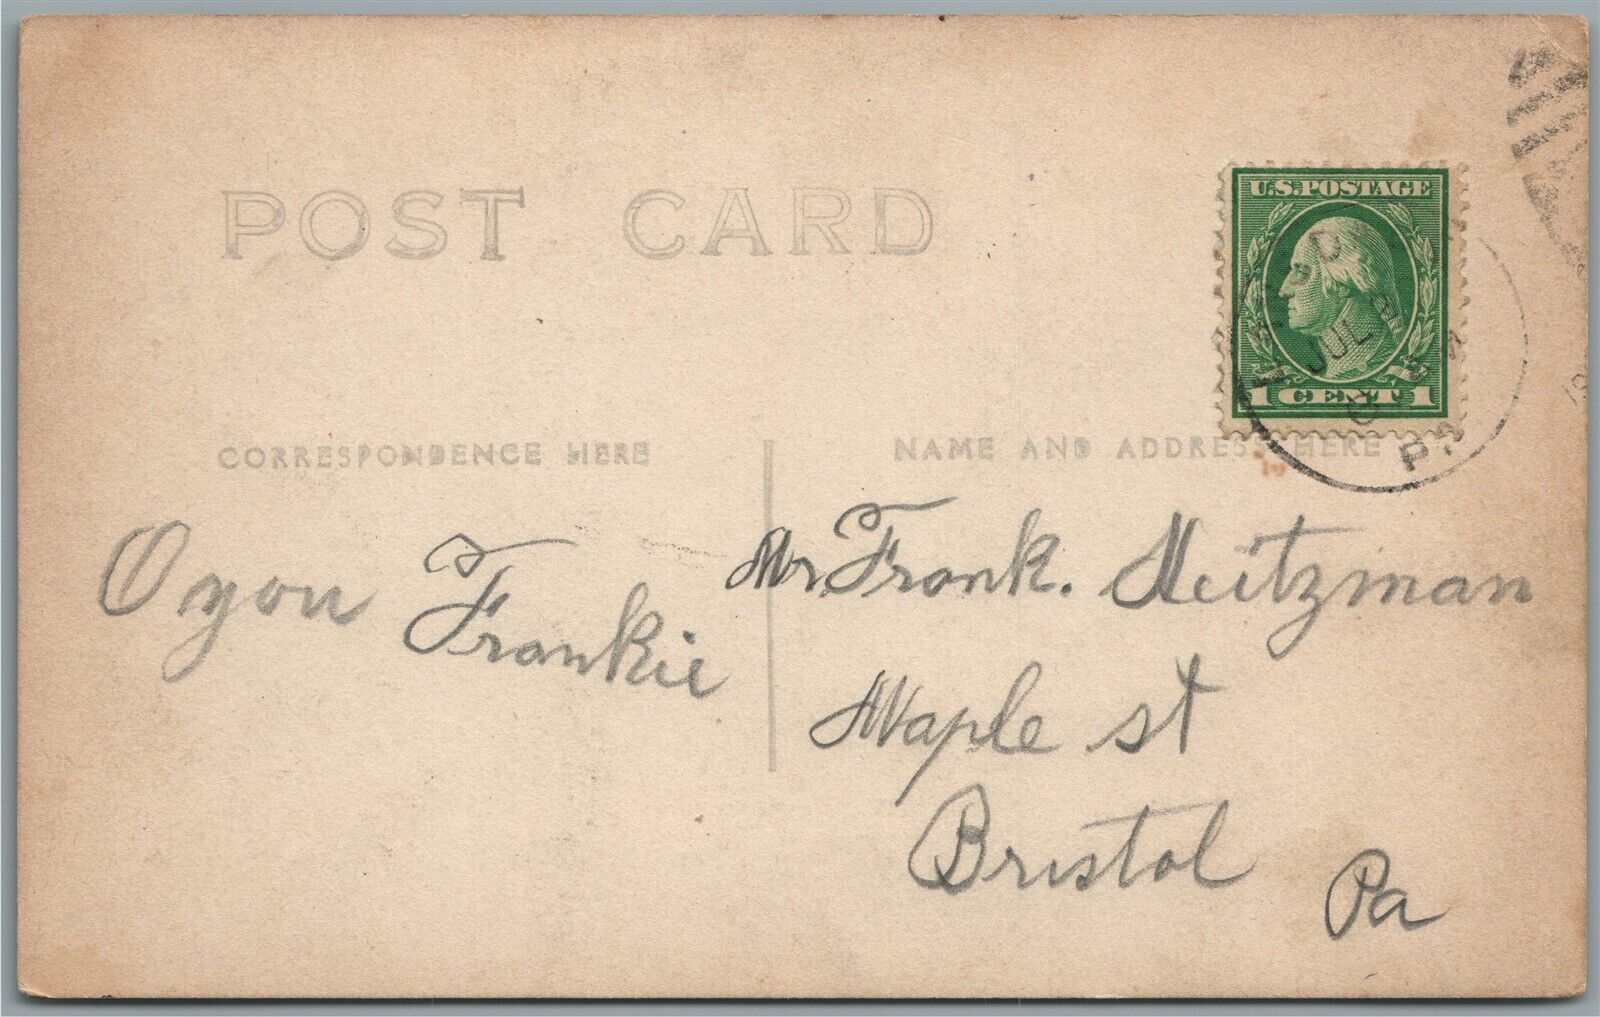 POST CARD
U.S. POSTAGE
1 CENT 1
JUL
PA
CORRESPONDENCE HERE
NAME AND ADDRESS HERE
O you Frankie
Mr Frank. Heitzman
Maple st
Bristol
Pa